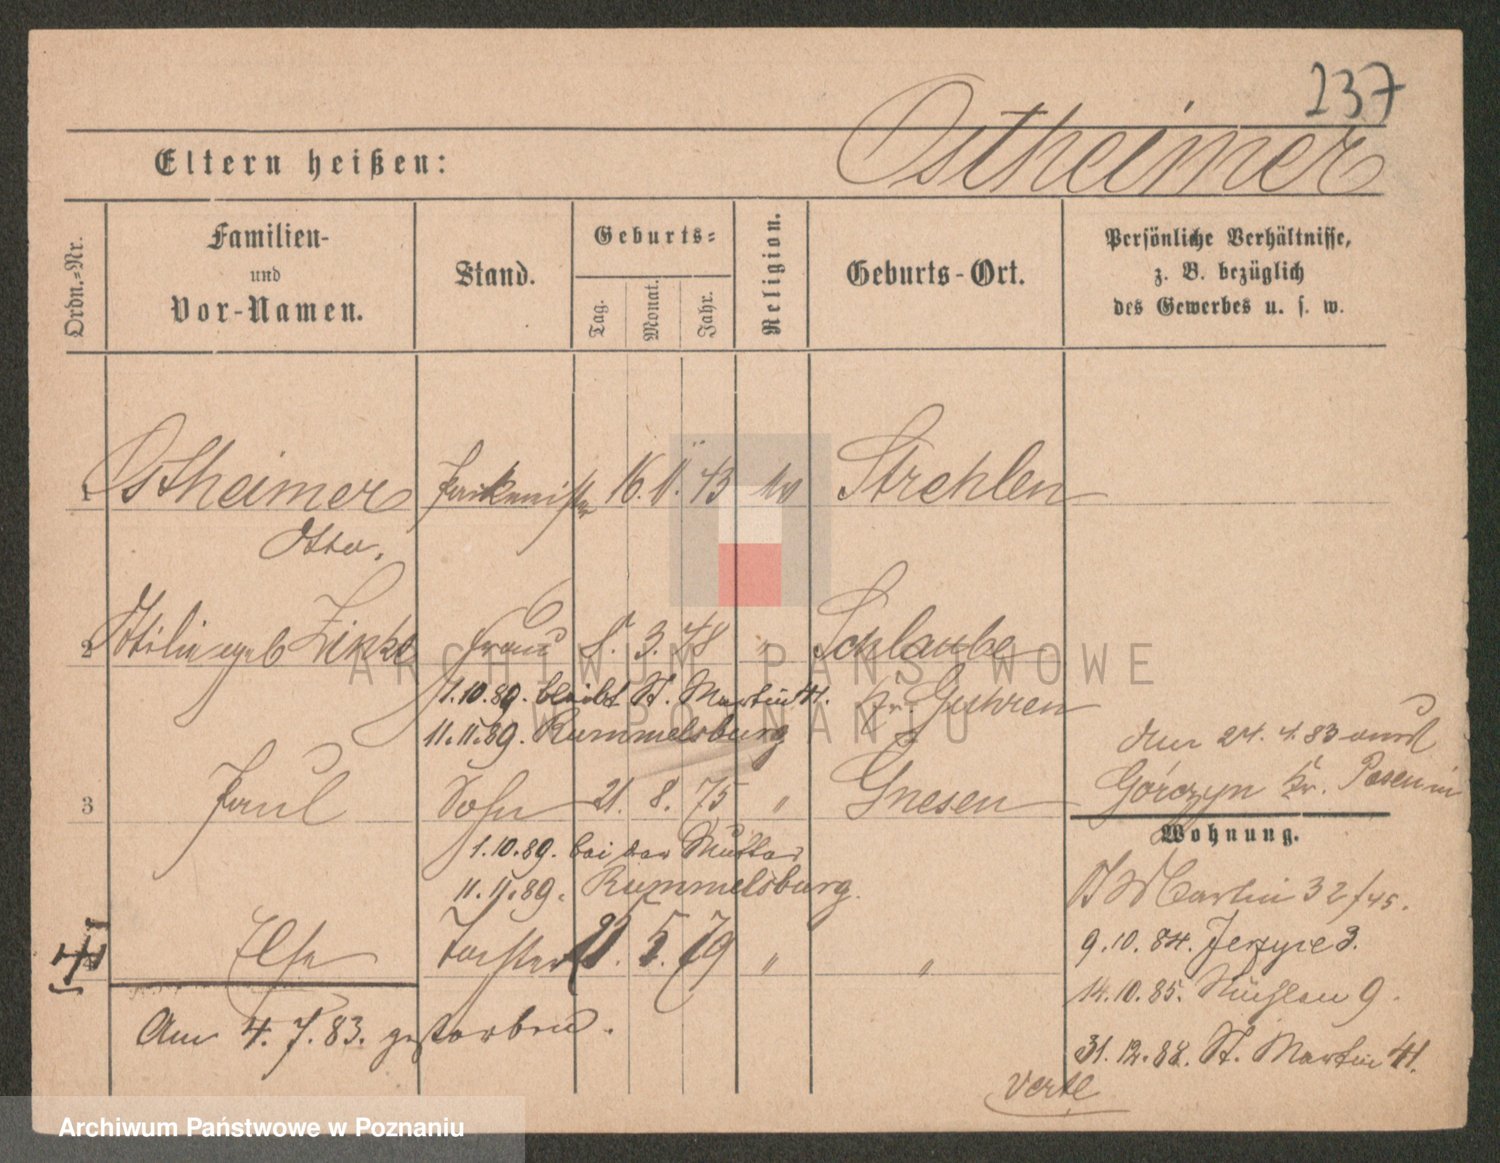 237
Ostheimer
Eltern heißen:
Ordn.-Nr.
Familien-
und
Vor-Namen.
Stand.
Geburts-
Tag.
Monat.
Jahr.
Religion.
Geburts-Ort.
Persönliche Verhältnisse,
z. B. bezüglich
des Gewerbes u. s. w.
1 Ostheimer 16. 11. 43 Strehlen
Otto.
2 geb Frau 8. 3. 48 " Schlaube
1.10.89. bleibt St. Martin 41. Kr. Guhren
11.11.89. Rummelsburg
den 24. 4. 83 nach
Górczyn Kr. Posen
3 Paul Sohn 21. 8. 75 " Gnesen
1.10.89. bei der Mutter
11.11.89. Rummelsburg.
Wohnung.
St Martin 32/45.
9.10.84. Jerzyce 3.
14.10.85. Mühlen 9.
31.12.88. St. Martin 41.
4 Else Tochter 21. 5. 79 " "
Am 4. 7. 83. gestorben.
Verte
ARCHIWUM PAŃSTWOWE
W POZNANIU
Archiwum Państwowe w Poznaniu